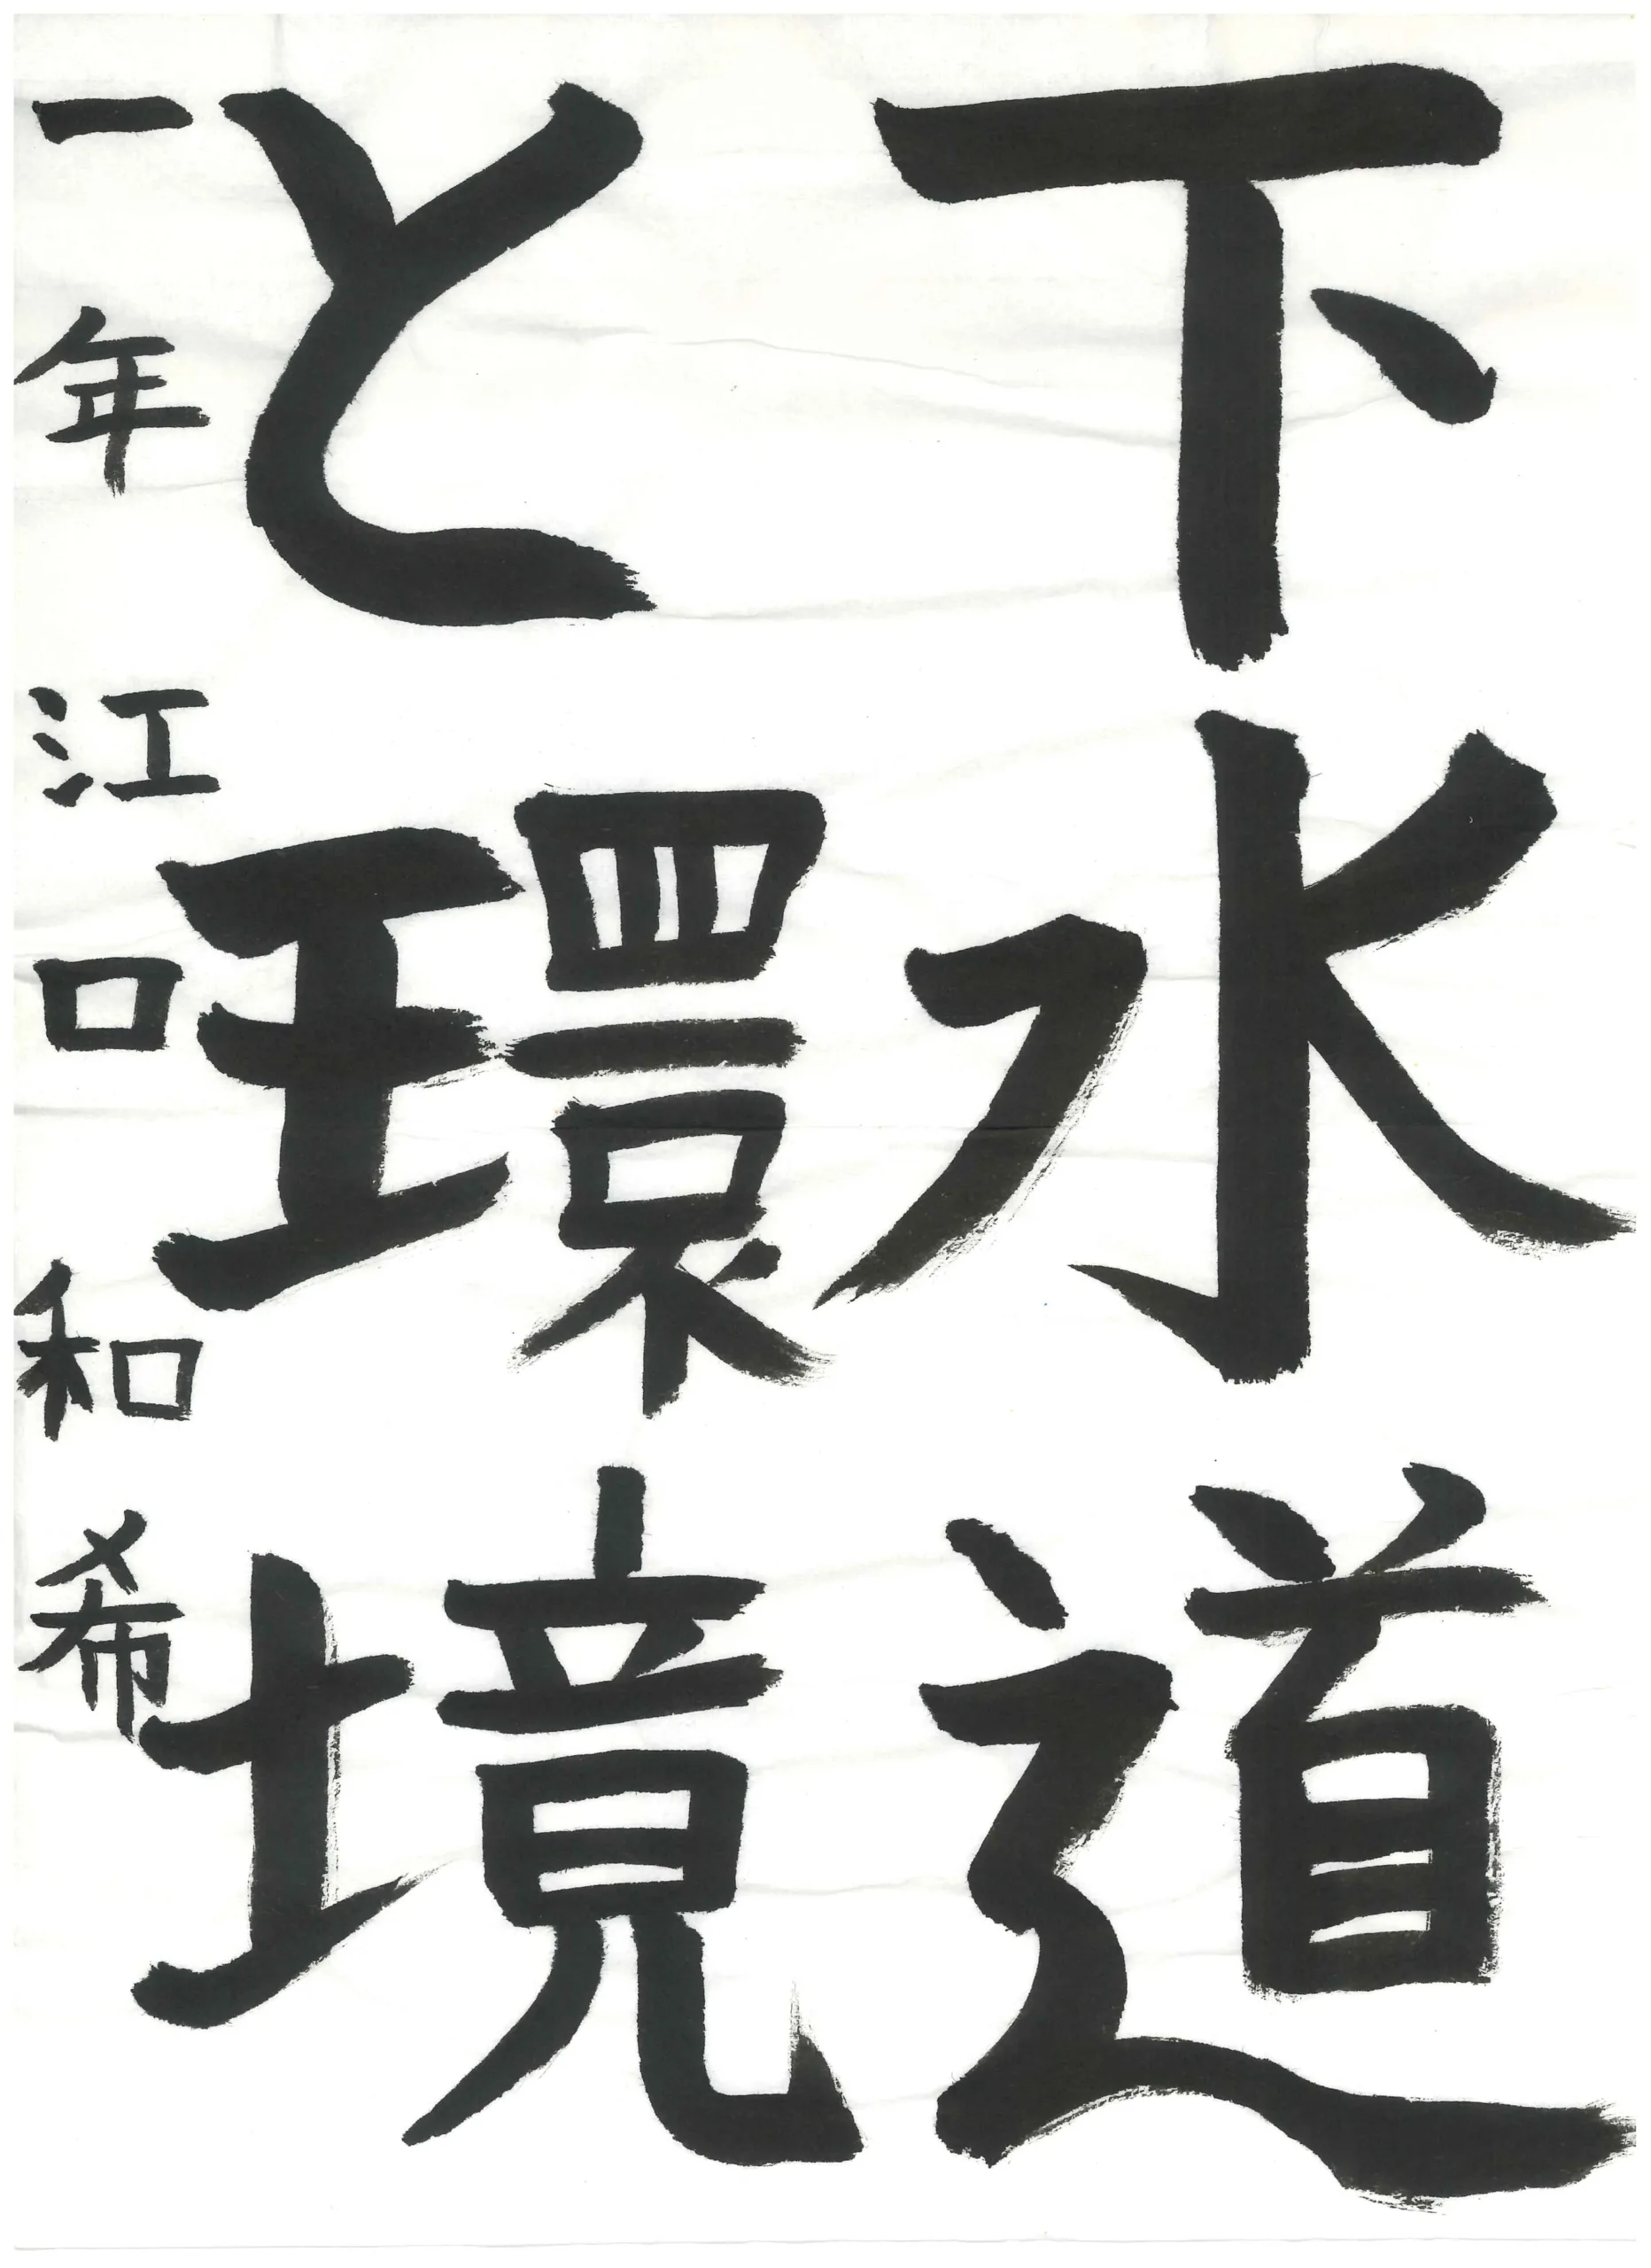 下水道
と環境
一年 江口和希